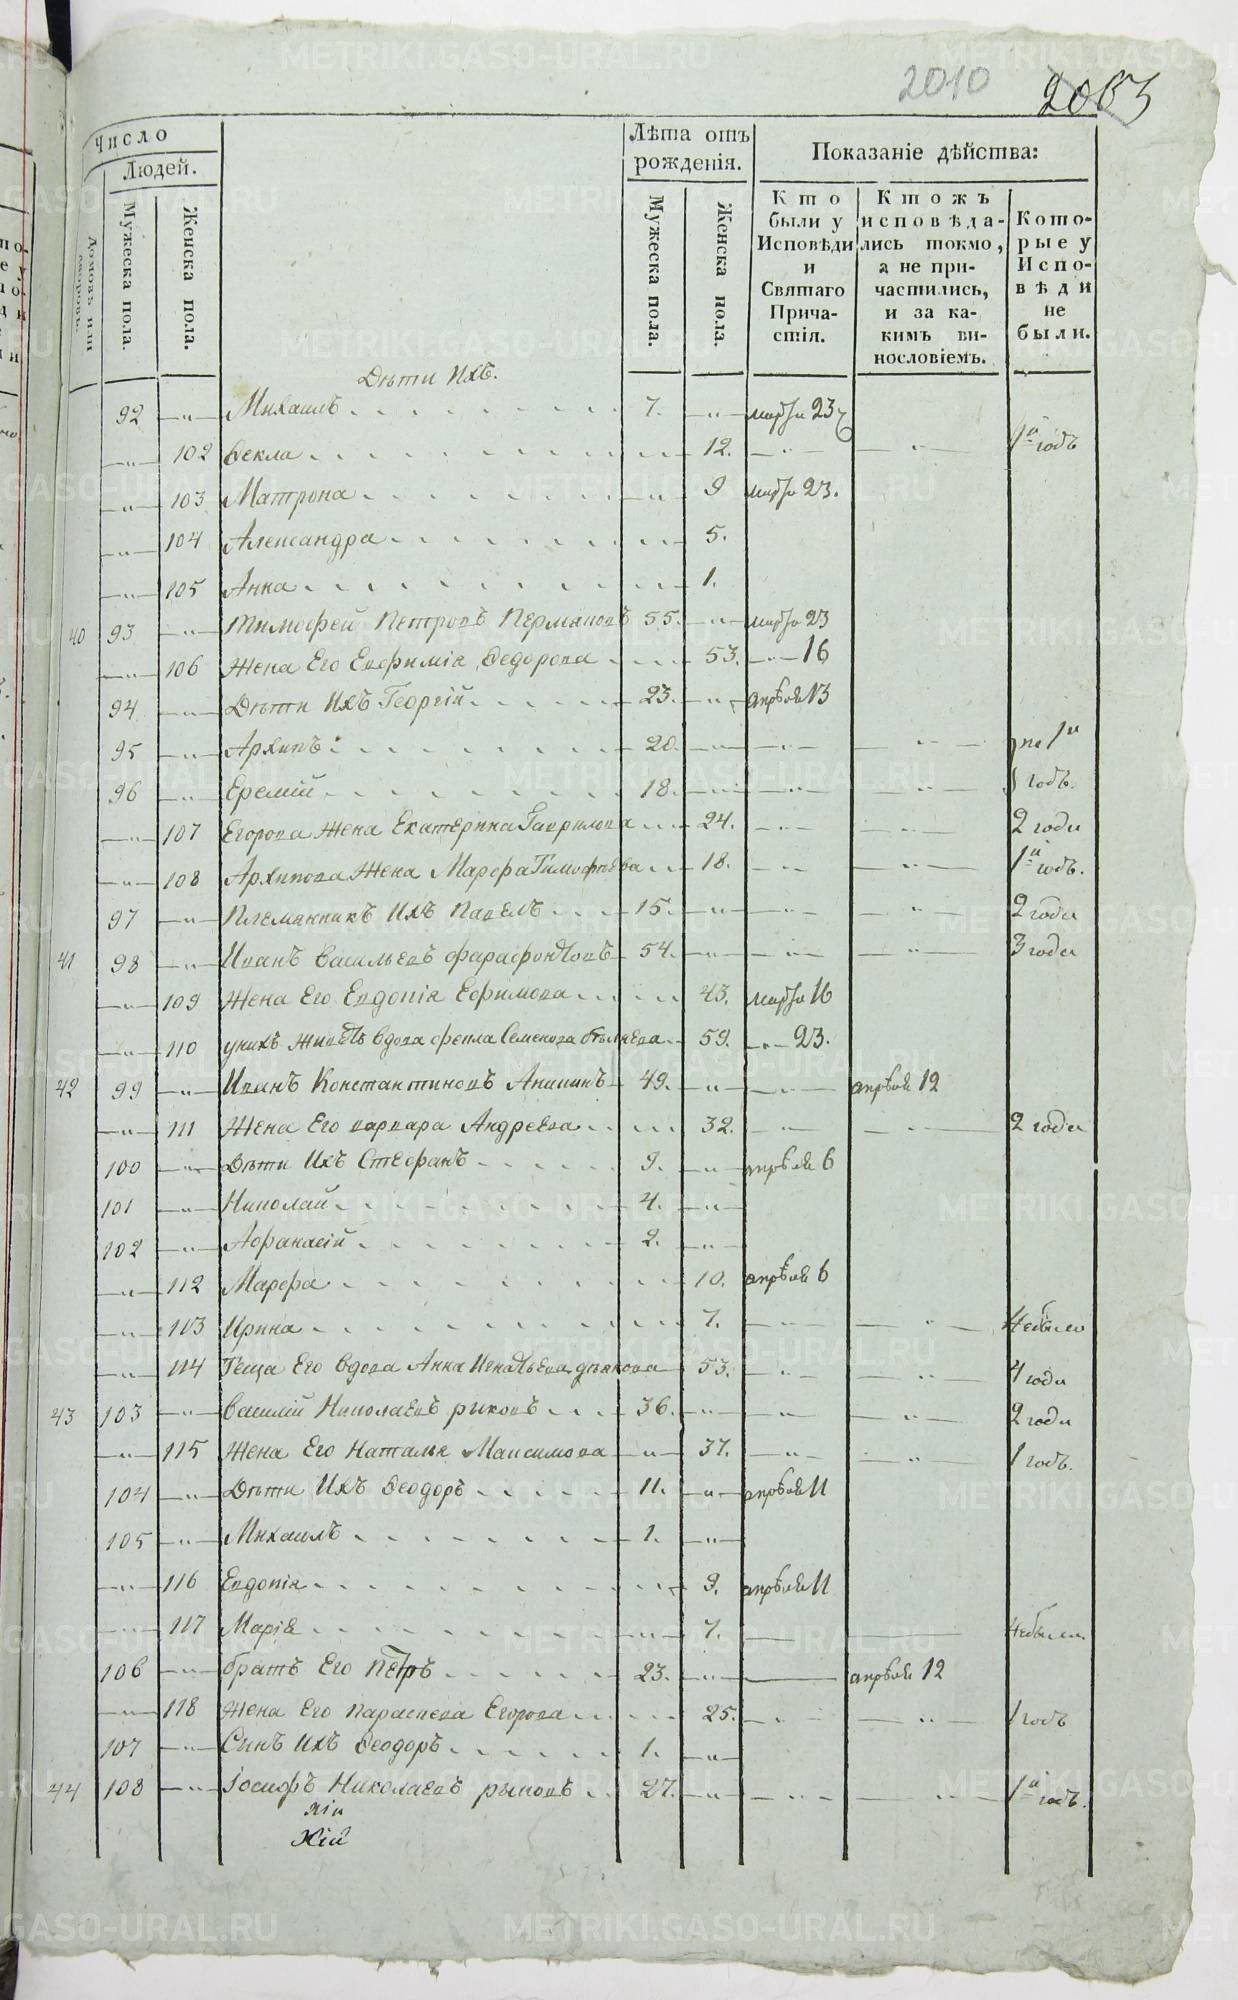 2010 2063
Число
Людей.
Лѣта отъ рожденія.
Показаніе дѣйства:
домовъ или дворовъ.
Мужеска пола.
Женска пола.
Мужеска пола.
Женска пола.
Кто были у Исповѣди и Святаго Причастія.
Ктожъ исповѣдались токмо, а не причастились, и за какимъ винословіемъ.
Которые у Исповѣди не были.
Дѣти Ихъ.
92 Михаилъ 7. марта 23
102 Ѳекла 12. 1й годъ
103 Матрона 9 марта 23.
104 Александра 5.
105 Анна 1.
40 93 Тимофей Петровъ Пермяковъ 55. марта 23
106 Жена Его Евфимія Ѳедорова 53. 16
94 Дѣти Ихъ Георгій 23. апрѣля 13
95 Архипъ 20. 1й
96 Еремій 18. годъ.
107 Егорова Жена Екатерина Гаврилова 24. 2 года
108 Архипова Жена Марфа Тимофѣева 18. 1й годъ.
97 Племянникъ Ихъ Павелъ 15. 2 года
41 98 Иванъ Васильевъ 54. 3 года
109 Жена Его Евдокія Ефимова 43. марта 16
110 унихъ Живетъ вдова фекла Семенова 59. 23.
42 99 Иванъ Константиновъ Аникинъ 49. апрѣля 12
111 Жена Его варвара Андреева 32. 2 года
100 Дѣти Ихъ Стефанъ 9. апрѣля 6
101 Николай 4.
102 Афанасій 2.
112 Марфа 10. апрѣля 6
103 Ирина 7. Небыла
114 Теща Его вдова Анна Игнатьева дьякова 53. 4 года
43 103 Василій Николаевъ рыковъ 36. 2 года
115 Жена Его Наталья Максимова 37. 1 годъ.
104 Дѣти Ихъ Ѳеодоръ 11. апрѣля 11
105 Михаилъ 1.
116 Евдокія 9. апрѣля 11
117 Марія 7. Небыла
106 братъ Его Петръ 23. апрѣля 12
118 Жена Его Параскева Егорова 25. 1 годъ
107 Сынъ Ихъ Ѳеодоръ 1.
44 108 Іосифъ Николаевъ рыковъ 27. 1й годъ.
хій